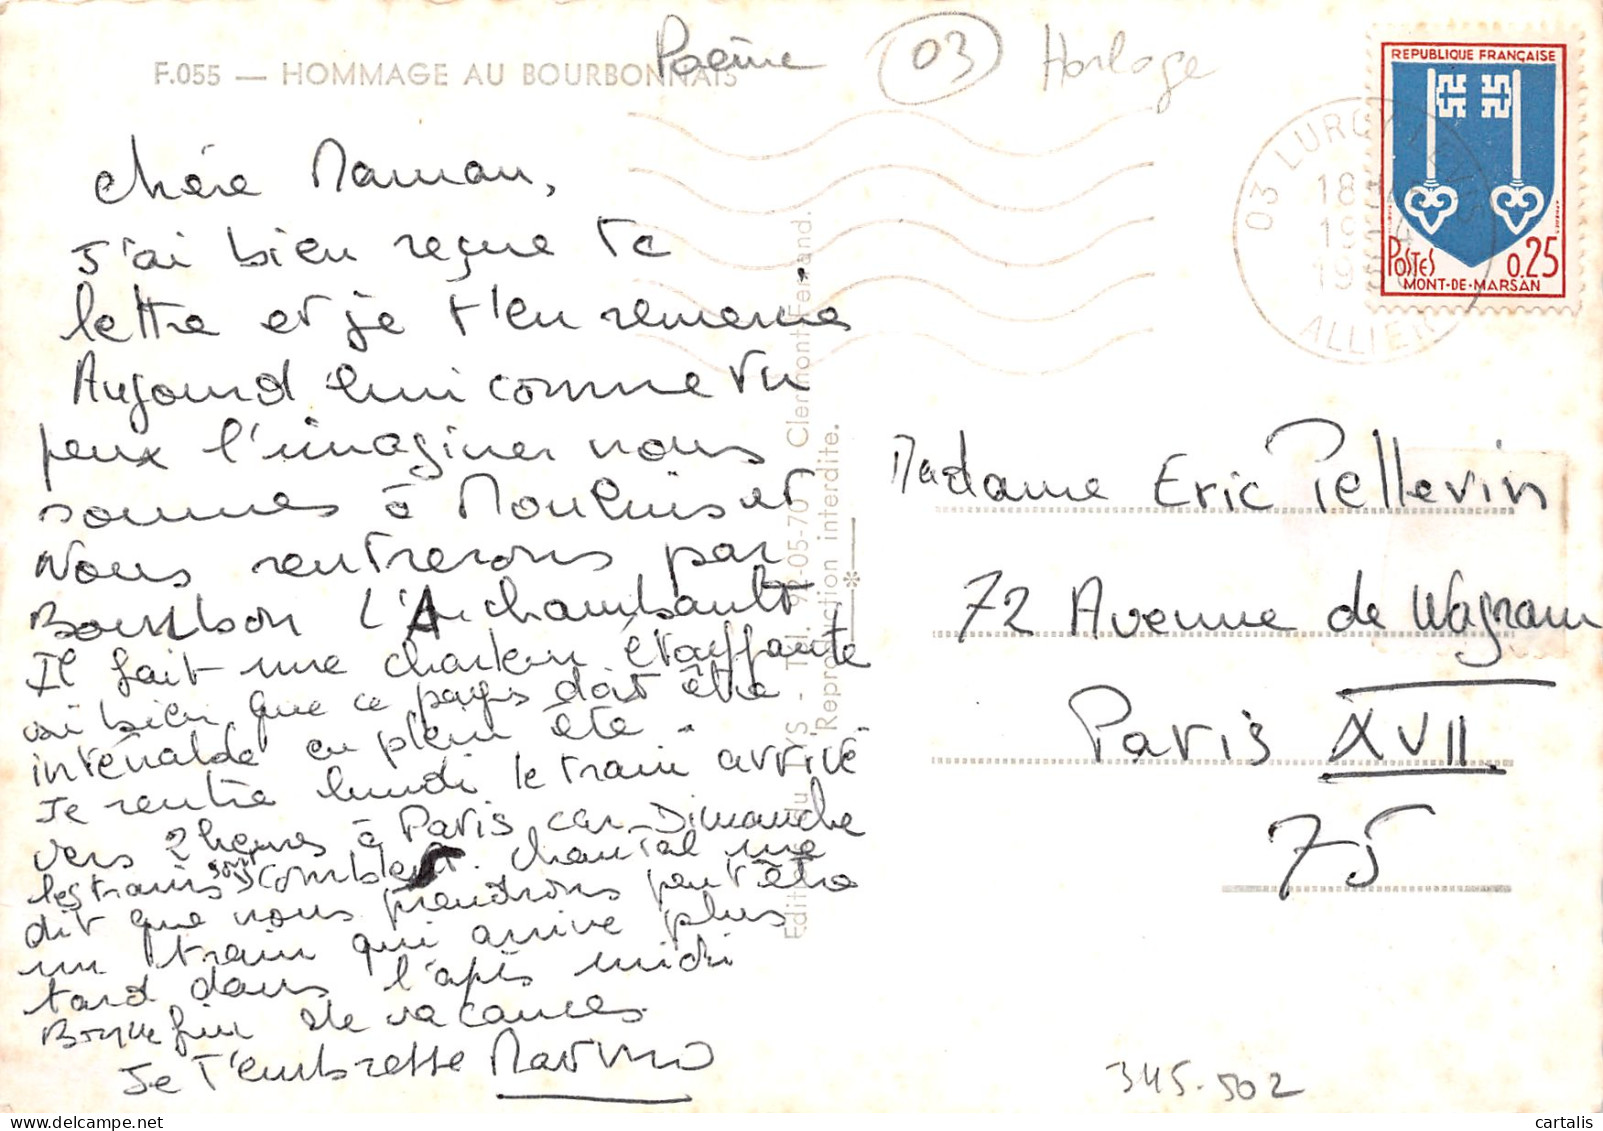 F.055 — HOMMAGE AU BOURBONNAIS
Poème
03
Horloge
REPUBLIQUE FRANÇAISE
POSTES
0.25
MONT-DE-MARSAN
03 LURCY LEVIS
18H
19-4
ALLIER
Chère Maman,
J'ai bien reçue ta
lettre et je t'en remercie
Aujourd'hui comme tu
peux l'imaginer nous
sommes à Moulins et
Nous rentrerons par
Bourbon L'Archambault,
Il fait une chaleur étouffante
si bien que ce pays doit être
en plein été.
Je rentre lundi le train arrive
vers 2 heures à Paris car Dimanche
les trains sont comblent. Chantal me
dit que nous prendrons peut être
un train qui arrive plus
tard dans l'après midi
Bonne fin de vacances.
Je t'embrasse
Madame Eric Pellevin
72 Avenue de Wagram
Paris XVII
75
Editions du LYS - Tél. 92-05-70 Clermont-Ferrand.
Reproduction interdite.
345-502
cartalis